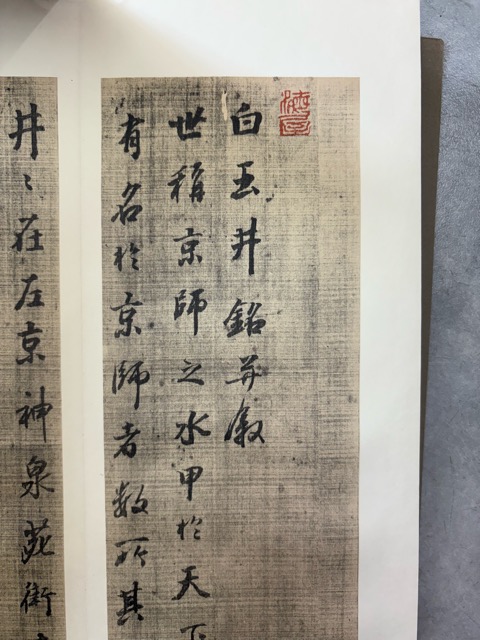 白玉井銘并叙
世稱京師之水甲於天下
有名於京師者數所其
井々在左京神泉苑街